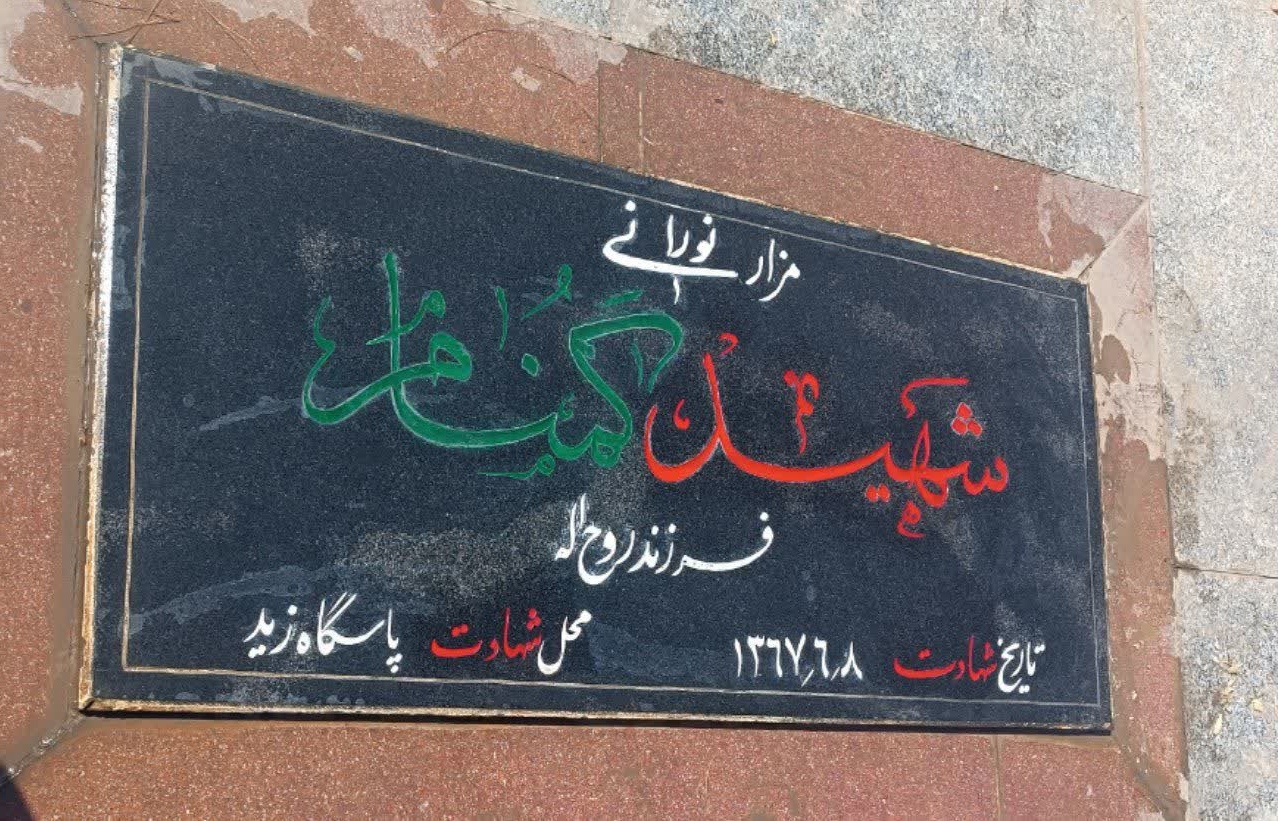 مزار نورانی
شهید گمنام
فرزند روح اله
تاریخ شهادت ۱۳۶۷٫۶٫۸ محل شهادت پاسگاه زید